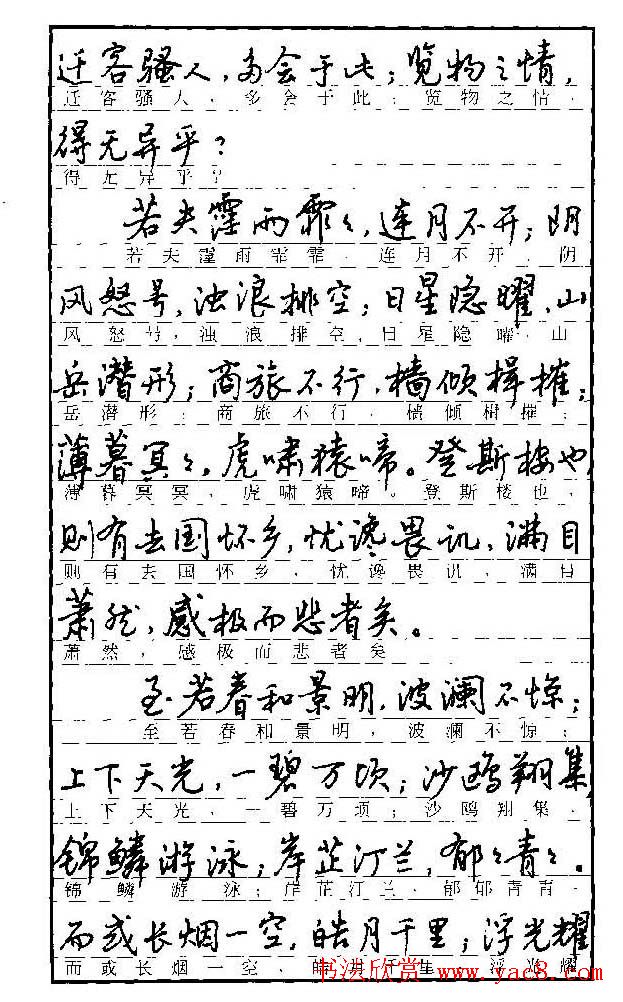 迁客骚人，多会于此；览物之情，
迁客骚人，多会于此；览物之情，
得无异乎？
得无异乎？
若夫霪雨霏々，连月不开；阴
若夫霪雨霏霏，连月不开，阴
风怒号，浊浪排空；日星隐曜，山
风怒号，浊浪排空，日星隐曜，山
岳潜形；商旅不行，樯倾楫摧；
岳潜形；商旅不行，樯倾楫摧；
薄暮冥々，虎啸猿啼。登斯楼也，
薄暮冥冥，虎啸猿啼。登斯楼也，
则有去国怀乡，忧谗畏讥，满目
则有去国怀乡，忧谗畏讥，满目
萧然，感极而悲者矣。
萧然，感极而悲者矣
至若春和景明，波澜不惊；
至若春和景明，波澜不惊；
上下天光，一碧万顷；沙鸥翔集，
上下天光，一碧万顷；沙鸥翔集，
锦鳞游泳；岸芷汀兰，郁々青々。
锦鳞游泳；岸芷汀兰，郁郁青青。
而或长烟一空，皓月千里；浮光耀
而或长烟一空，
书法欣赏 www.yac8.com